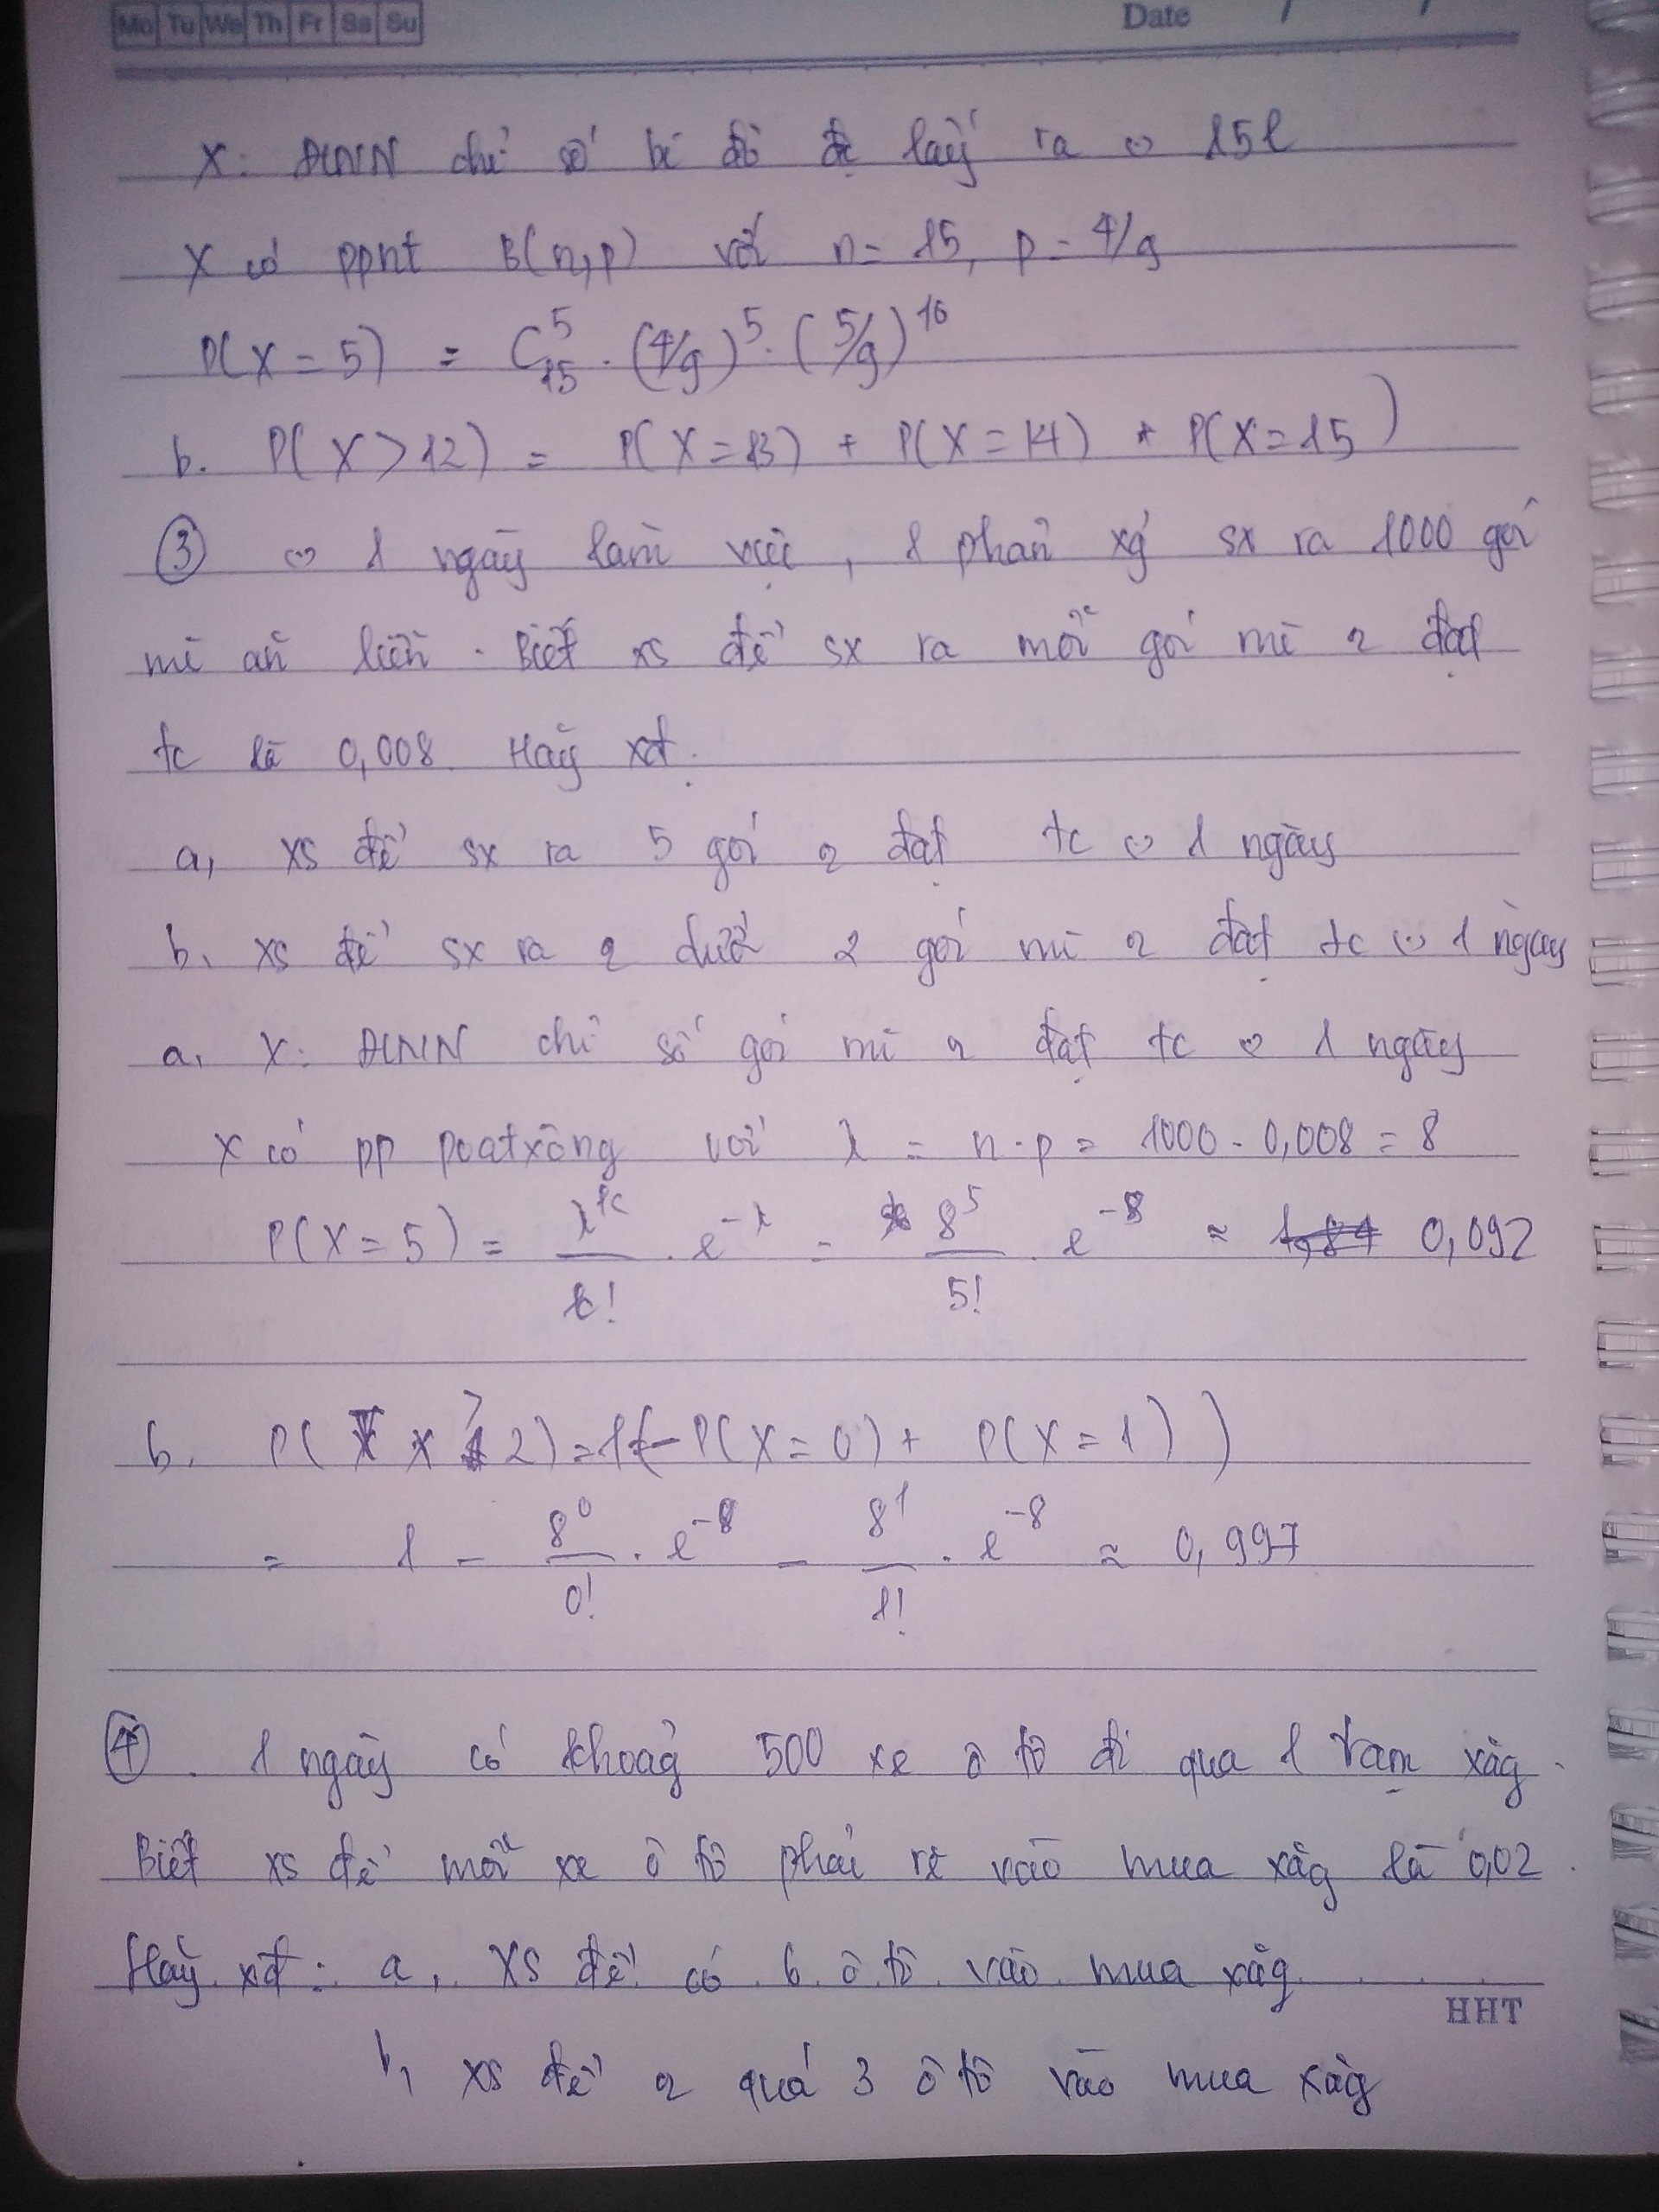 Mo Tu We Th Fr Sa Su Date / /
X: ĐLNN chỉ số bi đỏ lấy ra 15l
X có ppnt B(n,p) với n = 15, p = 4/9
P(X = 5) = C₁₅⁵ . (4/9)⁵ . (5/9)¹⁰
b. P(X > 12) = P(X = 13) + P(X = 14) + P(X = 15)
③ 1 ngày làm việc, 1 phân xg sx ra 1000 gói
mì ăn liền. Biết xs để sx ra mỗi gói mì đạt
tc là 0,008. Hãy xđ.
a, xs để sx ra 5 gói đạt tc 1 ngày
b, xs để sx ra dưới 2 gói mì đạt tc 1 ngày
a, X: ĐLNN chỉ số gói mì đạt tc 1 ngày
X có pp poatxông với λ = n.p = 1000 . 0,008 = 8
P(X = 5) = λᵏ/k! . e^-λ = 8⁵/5! . e⁻⁸ ≈ 0,092
b. P(X ≥ 2) = 1 (- P(X = 0) + P(X = 1))
= 1 - 8⁰/0! . e⁻⁸ - 8¹/1! . e⁻⁸ ≈ 0,997
④. 1 ngày có khoảg 500 xe ô tô đi qua 1 trạm xăg.
Biết xs để mỗi xe ô tô phải rẽ vào mua xăg là 0,02.
Hãy xđ: a, XS để có 6 ô tô vào mua xăg
HHT
b, xs để quá 3 ô tô vào mua xăg